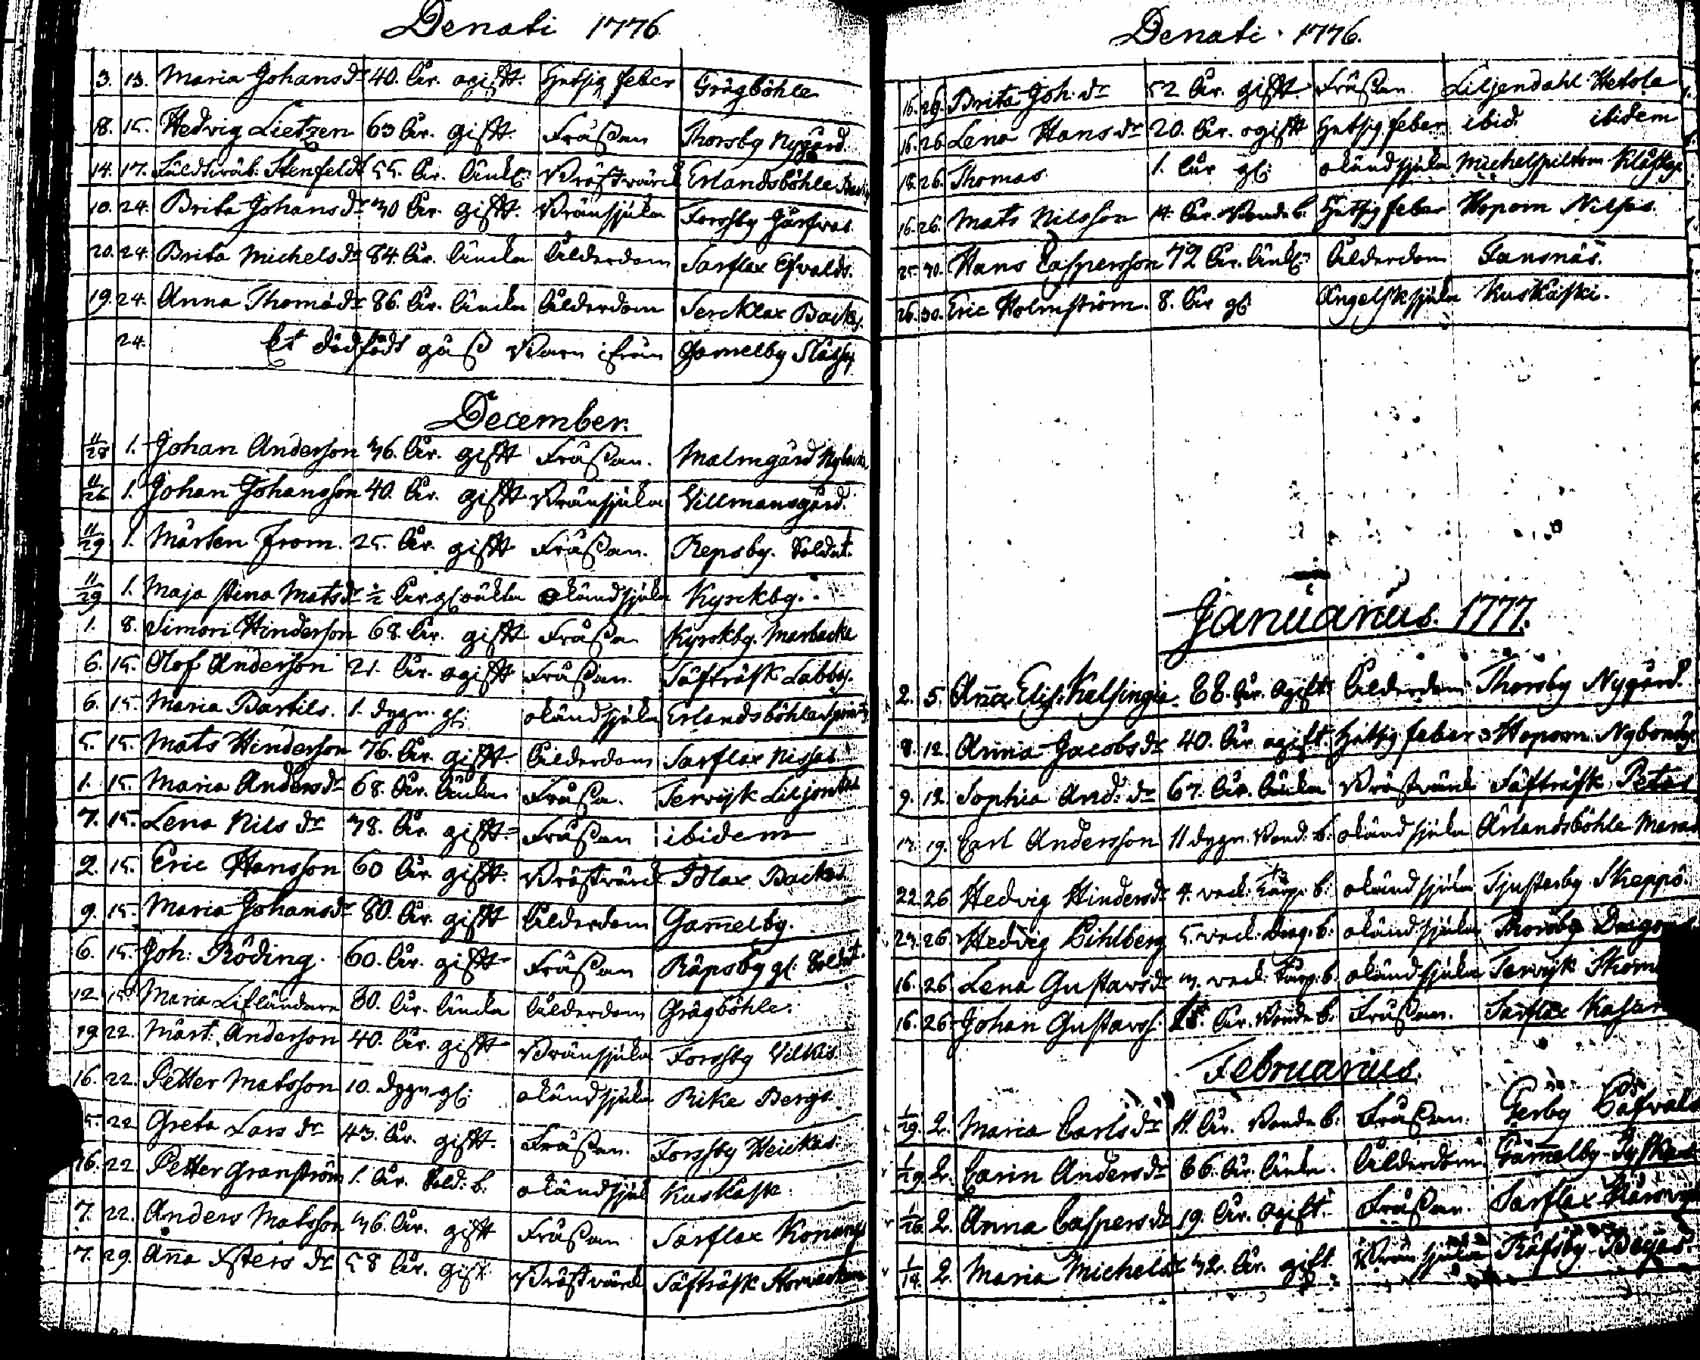 Denati 1776
3. 13. Maria Johansdr 40. År. ogift. Hetsig feber Grågböhle
8. 15. Hedvig Lietzen 63 År. gift. Fråssan Thorsby Nygård
14. 17. Stenfeldt 55. År. Änkl: Bröstvärck Erlandsböhle
10. 24. Brita Johansdr 30 År. gift. Brånsjuka Forssby
20. 24. Brita Michelsdr 84. År. Äncka Ålderdom Sarflax Esvalds
19. 24. Anna Thomædr 86. År. Äncka Ålderdom Sercklax Backs
24. Et dödfödt Barn ifrån Gamelby
December.
11/28 1. Johan Anderson 36. År. gift Fråssan. Malmgård Nybacka
11/26 1. Johan Johansson 40. År. gift Brånsjuka Villmansgård.
11/29 1. Mårten From. 25. År. gift Fråssan. Repsby. Soldat.
11/29 1. Maja Stina Matsdr 1/2 År oäkta okänd sjuka Kyrckby.
1. 8. Simon Hinderson 68. År. gift Fråssa Kyrckby. Marbacka
6. 15. Olof Anderson 21. År. ogift Fråssan. Säfträsk Labbas.
6. 15. Maria Bartils. 1. dygn. gl: okänd sjuka Erlandsböhle
5. 15. Mats Hinderson 76. År. gift Ålderdom Sarflax Nissas
1. 15. Maria Andersdr 68. År. Äncka Fråssa. Tervik
7. 15. Lena Nils dr 38. År. gift Fråssan ibidem
2. 15. Eric Hansson 60 År. gift Bröstvärck Idlax Backas.
9. 15. Maria Johansdr 80. År. gift Ålderdom Gamelby.
6. 15. Joh: Röding. 60. År. gift Fråssan Räpsby gl: Soldat
12. 15. Maria Lifländare 80. År. Äncka Ålderdom Grågböhle.
19. 22. Mårt. Anderson 40. År. gift Brånsjuka Forssby Vilkas.
16. 22. Petter Matsson 10. dygn gl: okänd sjuka Rike Bergs.
5. 22. Greta Lars dr 43. År. gift Fråssan. Forssby Weickas.
16. 22. Petter Granström 1. År. Sold: b. okänd sjuk Kuskåsk.
7. 22. Anders Matsson 36. År. gift Fråssan Sarflax Konungs
7. 29. Aña dr 58 År. gift Bröstvärck Säfträsk
Denati. 1776.
16. 26. Brita Joh. dr 52 År. gift Fråssan Liljendahl Hetola
16. 26. Lena Hans dr 20. År. ogift Hetsig feber ibid. ibidem
18. 26. Thomas 1. År gl: okänd sjuka Michelspiltom Klåckby
16. 26. Mats Nilsson 14. År. Bonde b. Hetsig feber Hopom Nilsas
25. 30. Hans Caspersson 72 År. Änkl: Ålderdom Fansnäs.
26. 30. Eric Holmström. 8. År gl: Engelsk sjuka Kuskåski.
Januarius. 1777.
2. 5. Aña Elis: Kalsingia. 88. År. Ogift Ålderdom Thorsby Nygård.
8. 12. Anna Jacobsdr 40. År. ogift. Hetsig feber Hopom Nybondas
9. 12. Sophia And: dr 67. År. Äncka Bröstvärck Säfträsk Petas
17. 19. Carl Andersson 11 dygn. Bond: b: okänd sjuka Ärlandsböhle
22. 26. Hedvig Hindersdr 4. veck: Torp: b: okänd sjuka Tjusterby Skeppo.
23. 26. Hedvig Cihlberg 5. veck: Drag: b: okänd sjuka Thorsby Dragon
16. 26. Lena Gustavsdr 3. veck: Torp: b. okänd sjuka Tervik
16. 26. Johan Gustavss. År. Bonde b: Fråssan. Sarflax
Februarius.
1/29 2. Maria Carlsdr 11. År. Bonde b: Fråssan. Gerby
1/29 2. Carin Andersdr 66. År. Äncka. Ålderdom Gamelby
1/26 2. Anna Caspersdr 19. År. Ogift. Fråssan. Sarflax
1/18 2. Maria Michelsdr 32. År. gift Brånsjuka Räfsby